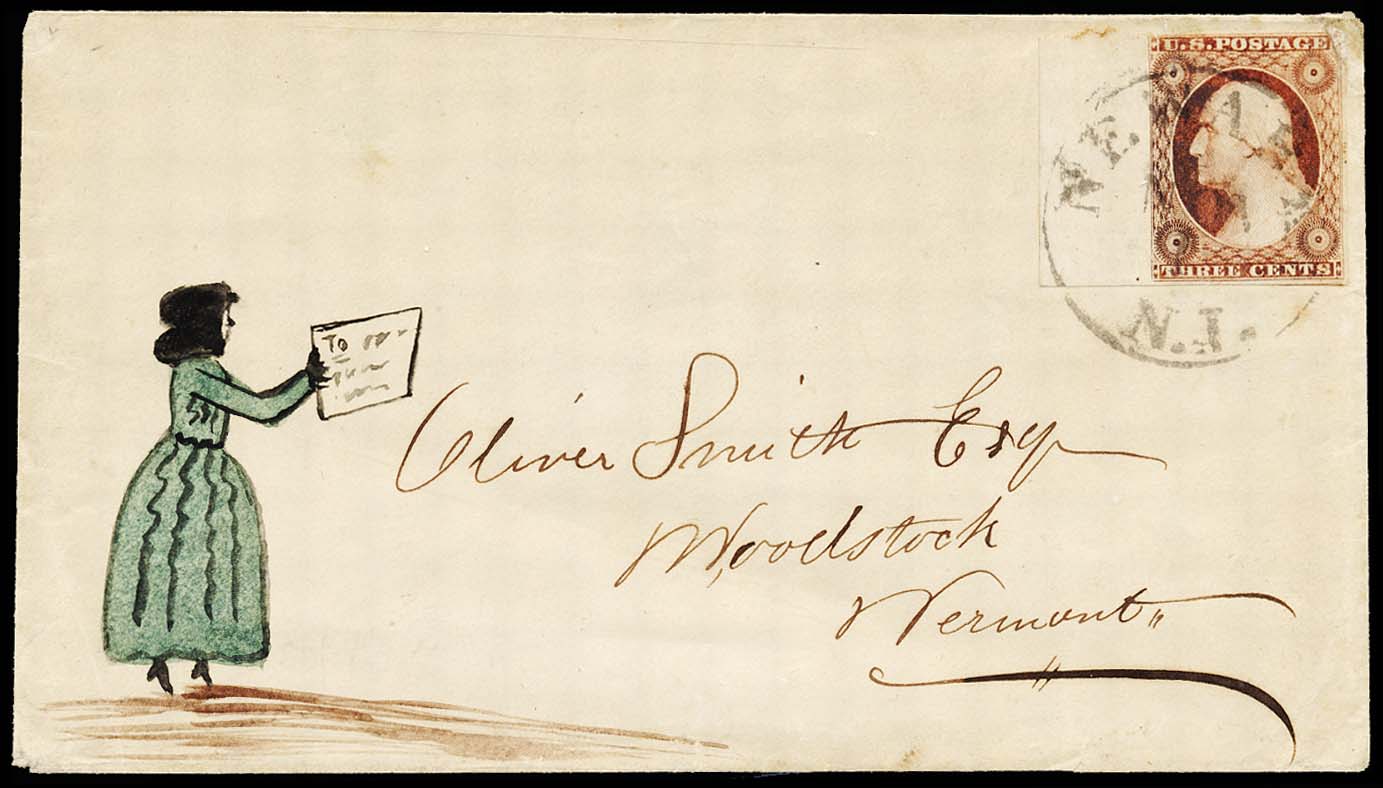 U.S. POSTAGE
THREE CENTS
NEWARK
N.J.
TO
Oliver Smith Esq
Woodstock
Vermont